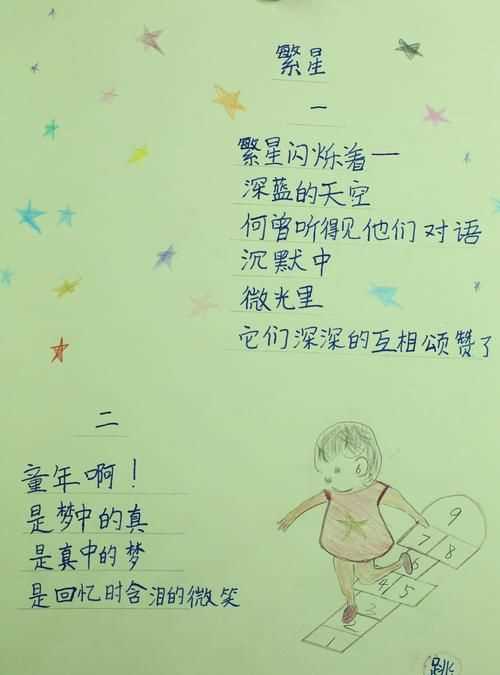 繁星
一
繁星闪烁着一
深蓝的天空
何曾听得见他们对语
沉默中
微光里
它们深深的互相颂赞了
二
童年啊！
是梦中的真
是真中的梦
是回忆时含泪的微笑
9
7 8
6
4 5
3
2
1
跳